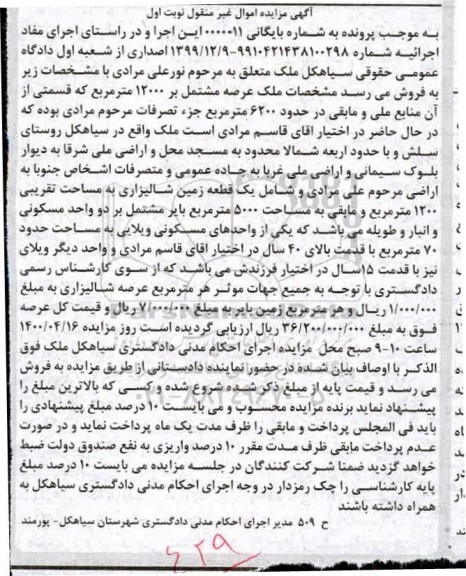 آگهی مزایده اموال غیر منقول نوبت اول
به موجب پرونده به شماره بایگانی ۰۰۰۰۰۱۱ این اجرا و در راستای اجرای مفاد
اجرائیه شماره ۹۹۱۰۴۲۱۴۳۸۱۰۰۲۹۸-۱۳۹۹/۱۲/۹ اصداری از شعبه اول دادگاه
عمومی حقوقی سیاهکل ملک متعلق به مرحوم نورعلی مرادی با مشخصات زیر
به فروش می رسد مشخصات ملک عرصه مشتمل بر ۱۲۰۰۰ مترمربع که قسمتی از
آن منابع ملی و مابقی در حدود ۶۲۰۰ مترمربع جزء تصرفات مرحوم مرادی بوده که
در حال حاضر در اختیار اقای قاسم مرادی است ملک واقع در سیاهکل روستای
سلش و با حدود اربعه شمالا محدود به مسجد محل و اراضی ملی شرقا به دیوار
بلوک سیمانی و اراضی ملی غربا به جاده عمومی و متصرفات اشخاص جنوبا به
اراضی مرحوم علی مرادی و شامل یک قطعه زمین شالیزاری به مساحت تقریبی
۱۲۰۰ مترمربع و مابقی به مساحت ۵۰۰۰ مترمربع بایر مشتمل بر دو واحد مسکونی
و انبار و طویله می باشد که یکی از واحدهای مسکونی ویلایی به مساحت حدود
۷۰ مترمربع با قدمت بالای ۴۰ سال در اختیار اقای قاسم مرادی و واحد دیگر ویلای
نیز با قدمت ۱۵سال در اختیار فرزندش می باشد که از سوی کارشناس رسمی
دادگستری با توجه به جمیع جهات موثر هر مترمربع عرصه شالیزاری به مبلغ
۱/۰۰۰/۰۰۰ ریال و هر مترمربع زمین بایر به مبلغ ۷/۰۰۰/۰۰۰ ریال و قیمت کل عرصه
فوق به مبلغ ۳۶/۲۰۰/۰۰۰/۰۰۰ ریال ارزیابی گردیده است روز مزایده ۱۴۰۰/۰۴/۱۶
ساعت ۱۰-۹ صبح محل مزایده اجرای احکام مدنی دادگستری سیاهکل ملک فوق
الذکر با اوصاف بیان شده در حضور نماینده دادستانی از طریق مزایده به فروش
می رسد و قیمت پایه از مبلغ ذکر شده شروع شده و کسی که بالاترین مبلغ را
پیشنهاد نماید برنده مزایده محسوب و می بایست ۱۰ درصد مبلغ پیشنهادی را
باید فی المجلس پرداخت و مابقی را ظرف مدت یک ماه پرداخت نماید و در صورت
عدم پرداخت مابقی ظرف مدت مقرر ۱۰ درصد واریزی به نفع صندوق دولت ضبط
خواهد گردید ضمنا شرکت کنندگان در جلسه مزایده می بایست ۱۰ درصد مبلغ
پایه کارشناسی را چک رمزدار در وجه اجرای احکام مدنی دادگستری سیاهکل به
همراه داشته باشند
ح ۵۰۹ مدیر اجرای احکام مدنی دادگستری شهرستان سیاهکل- پورمند
۶۲۹